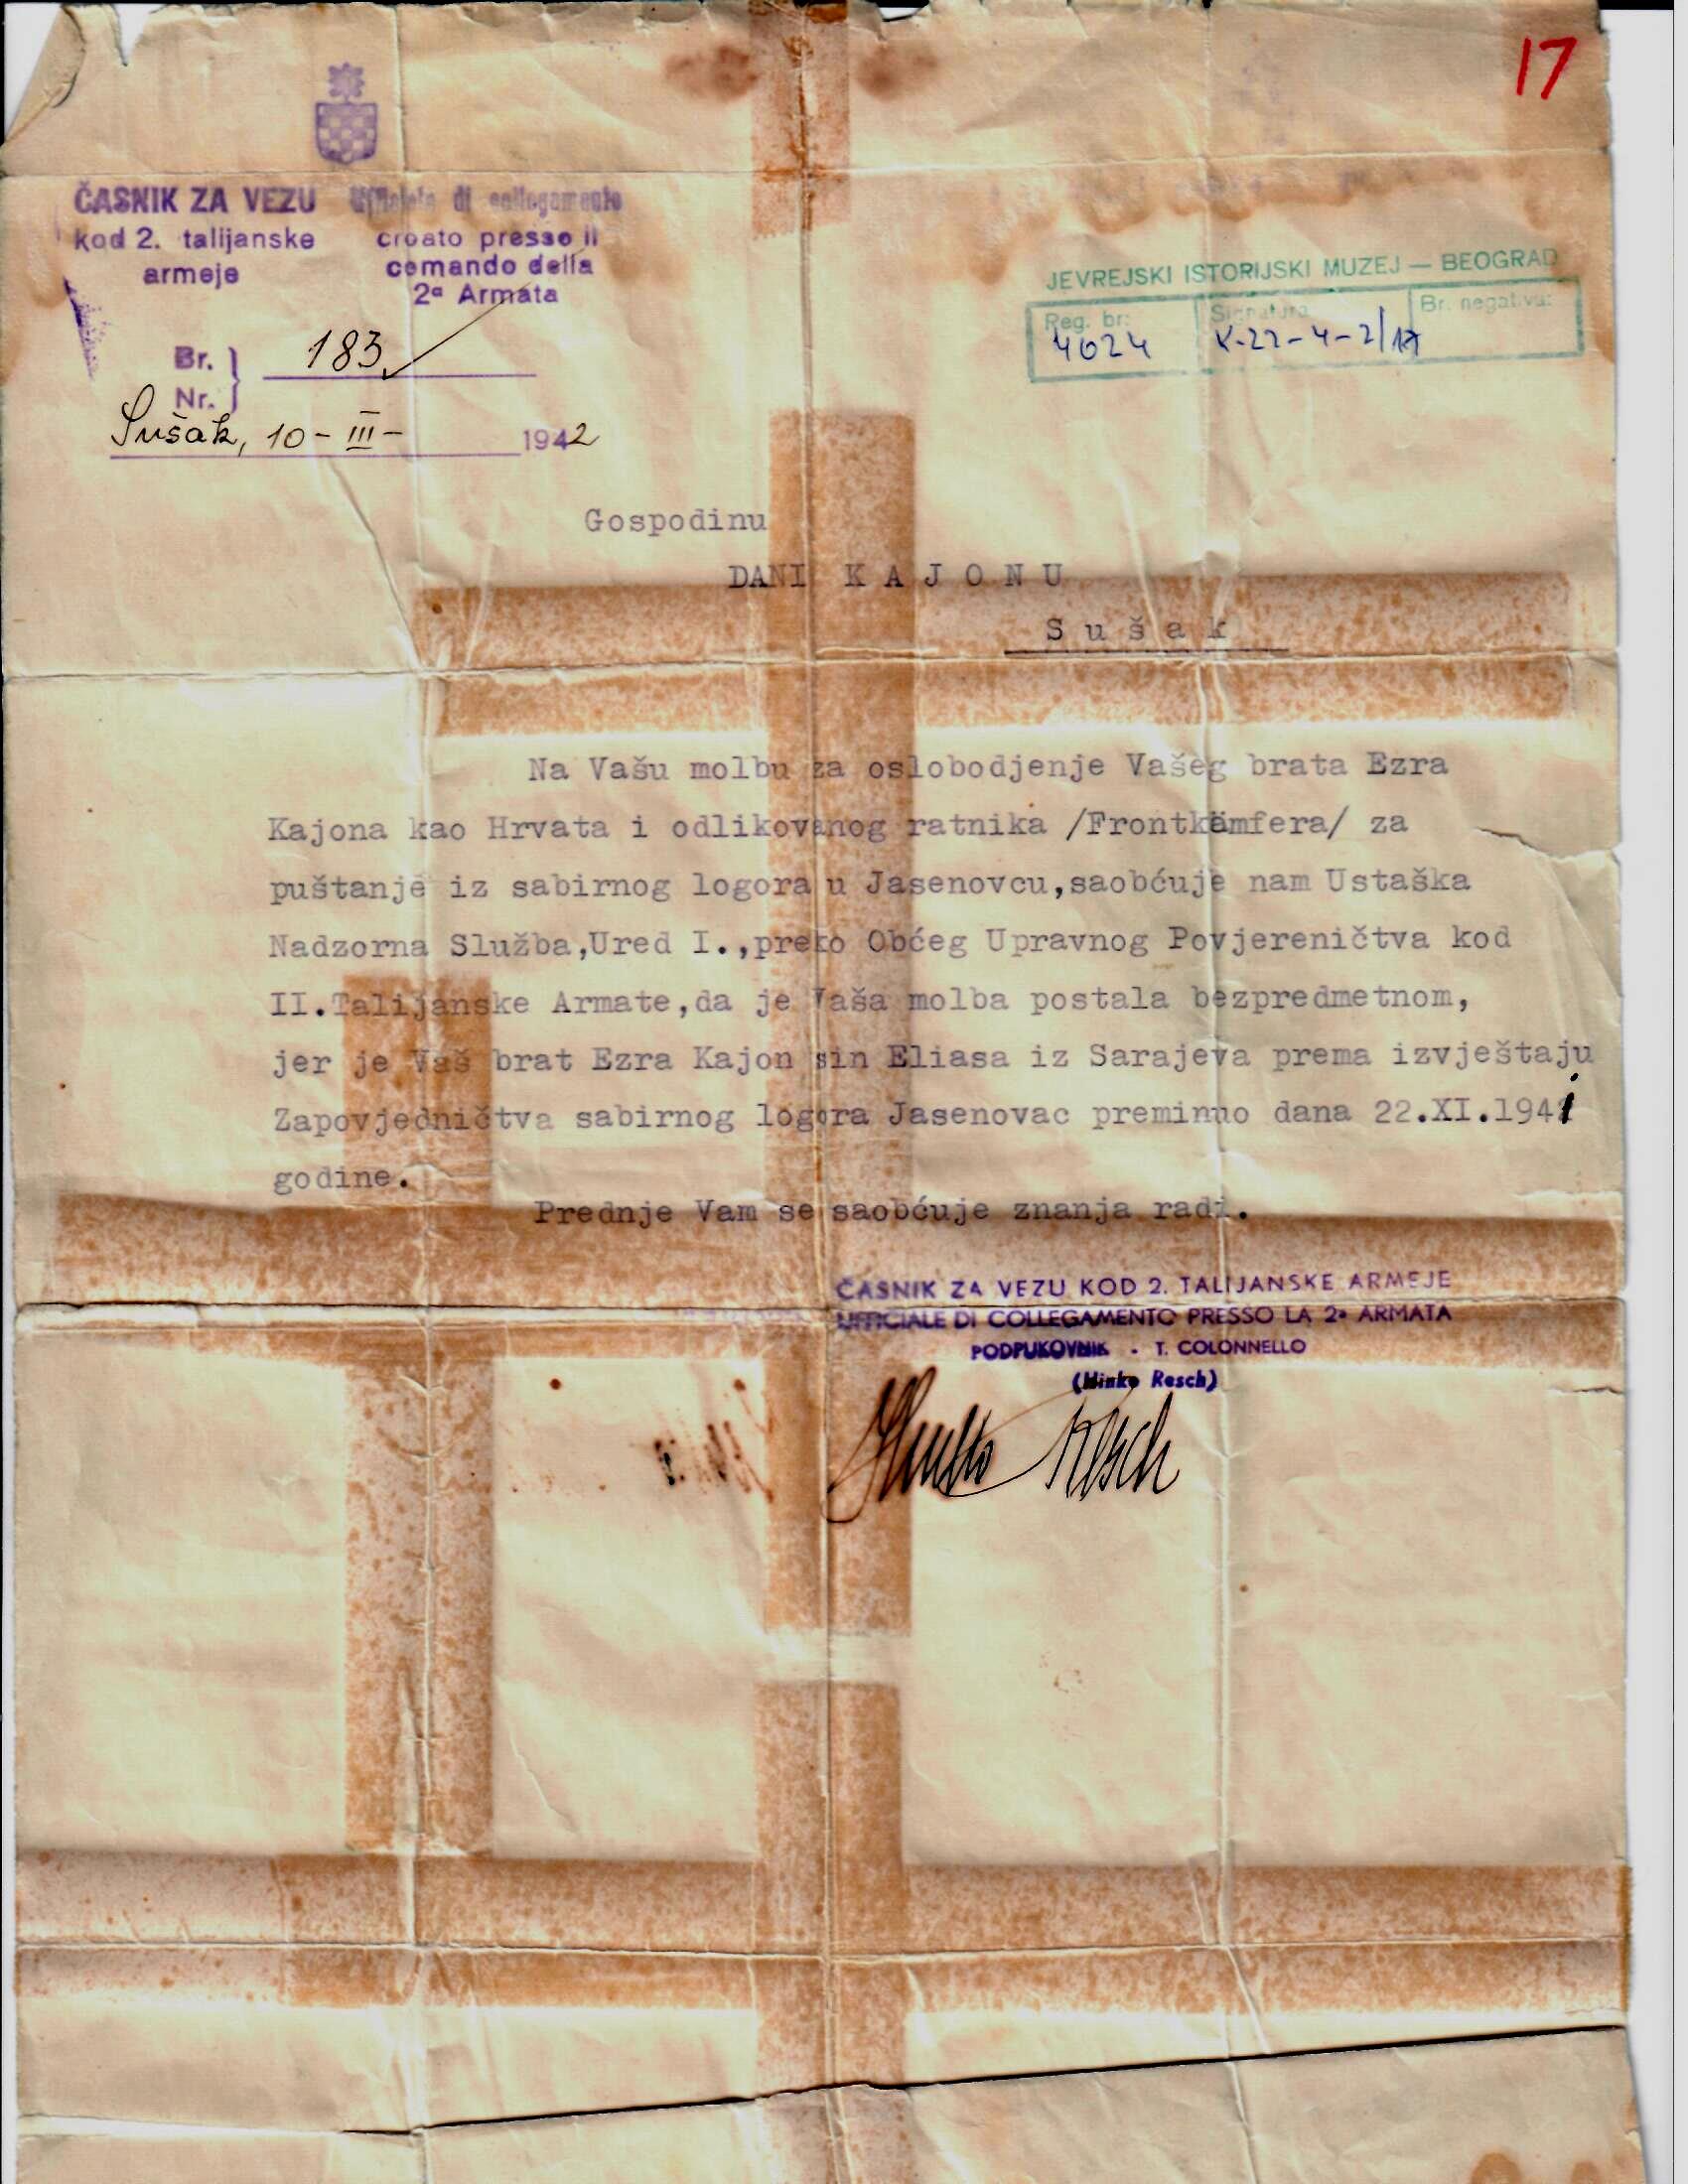 17
ČASNIK ZA VEZU
kod 2. talijanske
armeje
Ufficiale di collegamento
croato presso il
comando della
2ª Armata
JEVREJSKI ISTORIJSKI MUZEJ — BEOGRAD
Reg. br: Signatura Br. negativa:
4024 K-22-4-2/17
Br. 183
Nr.
Sušak, 10-III- 1942
Gospodinu
DANI KAJONU
Sušak
Na Vašu molbu za oslobodjenje Vašeg brata Ezra
Kajona kao Hrvata i odlikovanog ratnika /Frontkämfera/ za
puštanje iz sabirnog logora u Jasenovcu,saobćuje nam Ustaška
Nadzorna Služba,Ured I.,preko Obćeg Upravnog Povjereničtva kod
II.Talijanske Armate,da je Vaša molba postala bezpredmetnom,
jer je Vaš brat Ezra Kajon sin Eliasa iz Sarajeva prema izvještaju
Zapovjedničtva sabirnog logora Jasenovac preminuo dana 22.XI.1941
godine.
Prednje Vam se saobćuje znanja radi.
ČASNIK ZA VEZU KOD 2. TALIJANSKE ARMEJE
UFFICIALE DI COLLEGAMENTO PRESSO LA 2ª ARMATA
PODPUKOVNIK - T. COLONNELLO
(Hinko Resch)
Hinko Resch